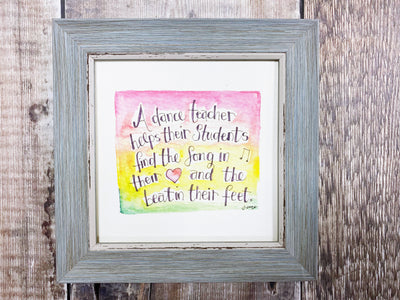 A dance teacher
helps their Students
find the Song in
their and the
beat in their feet.